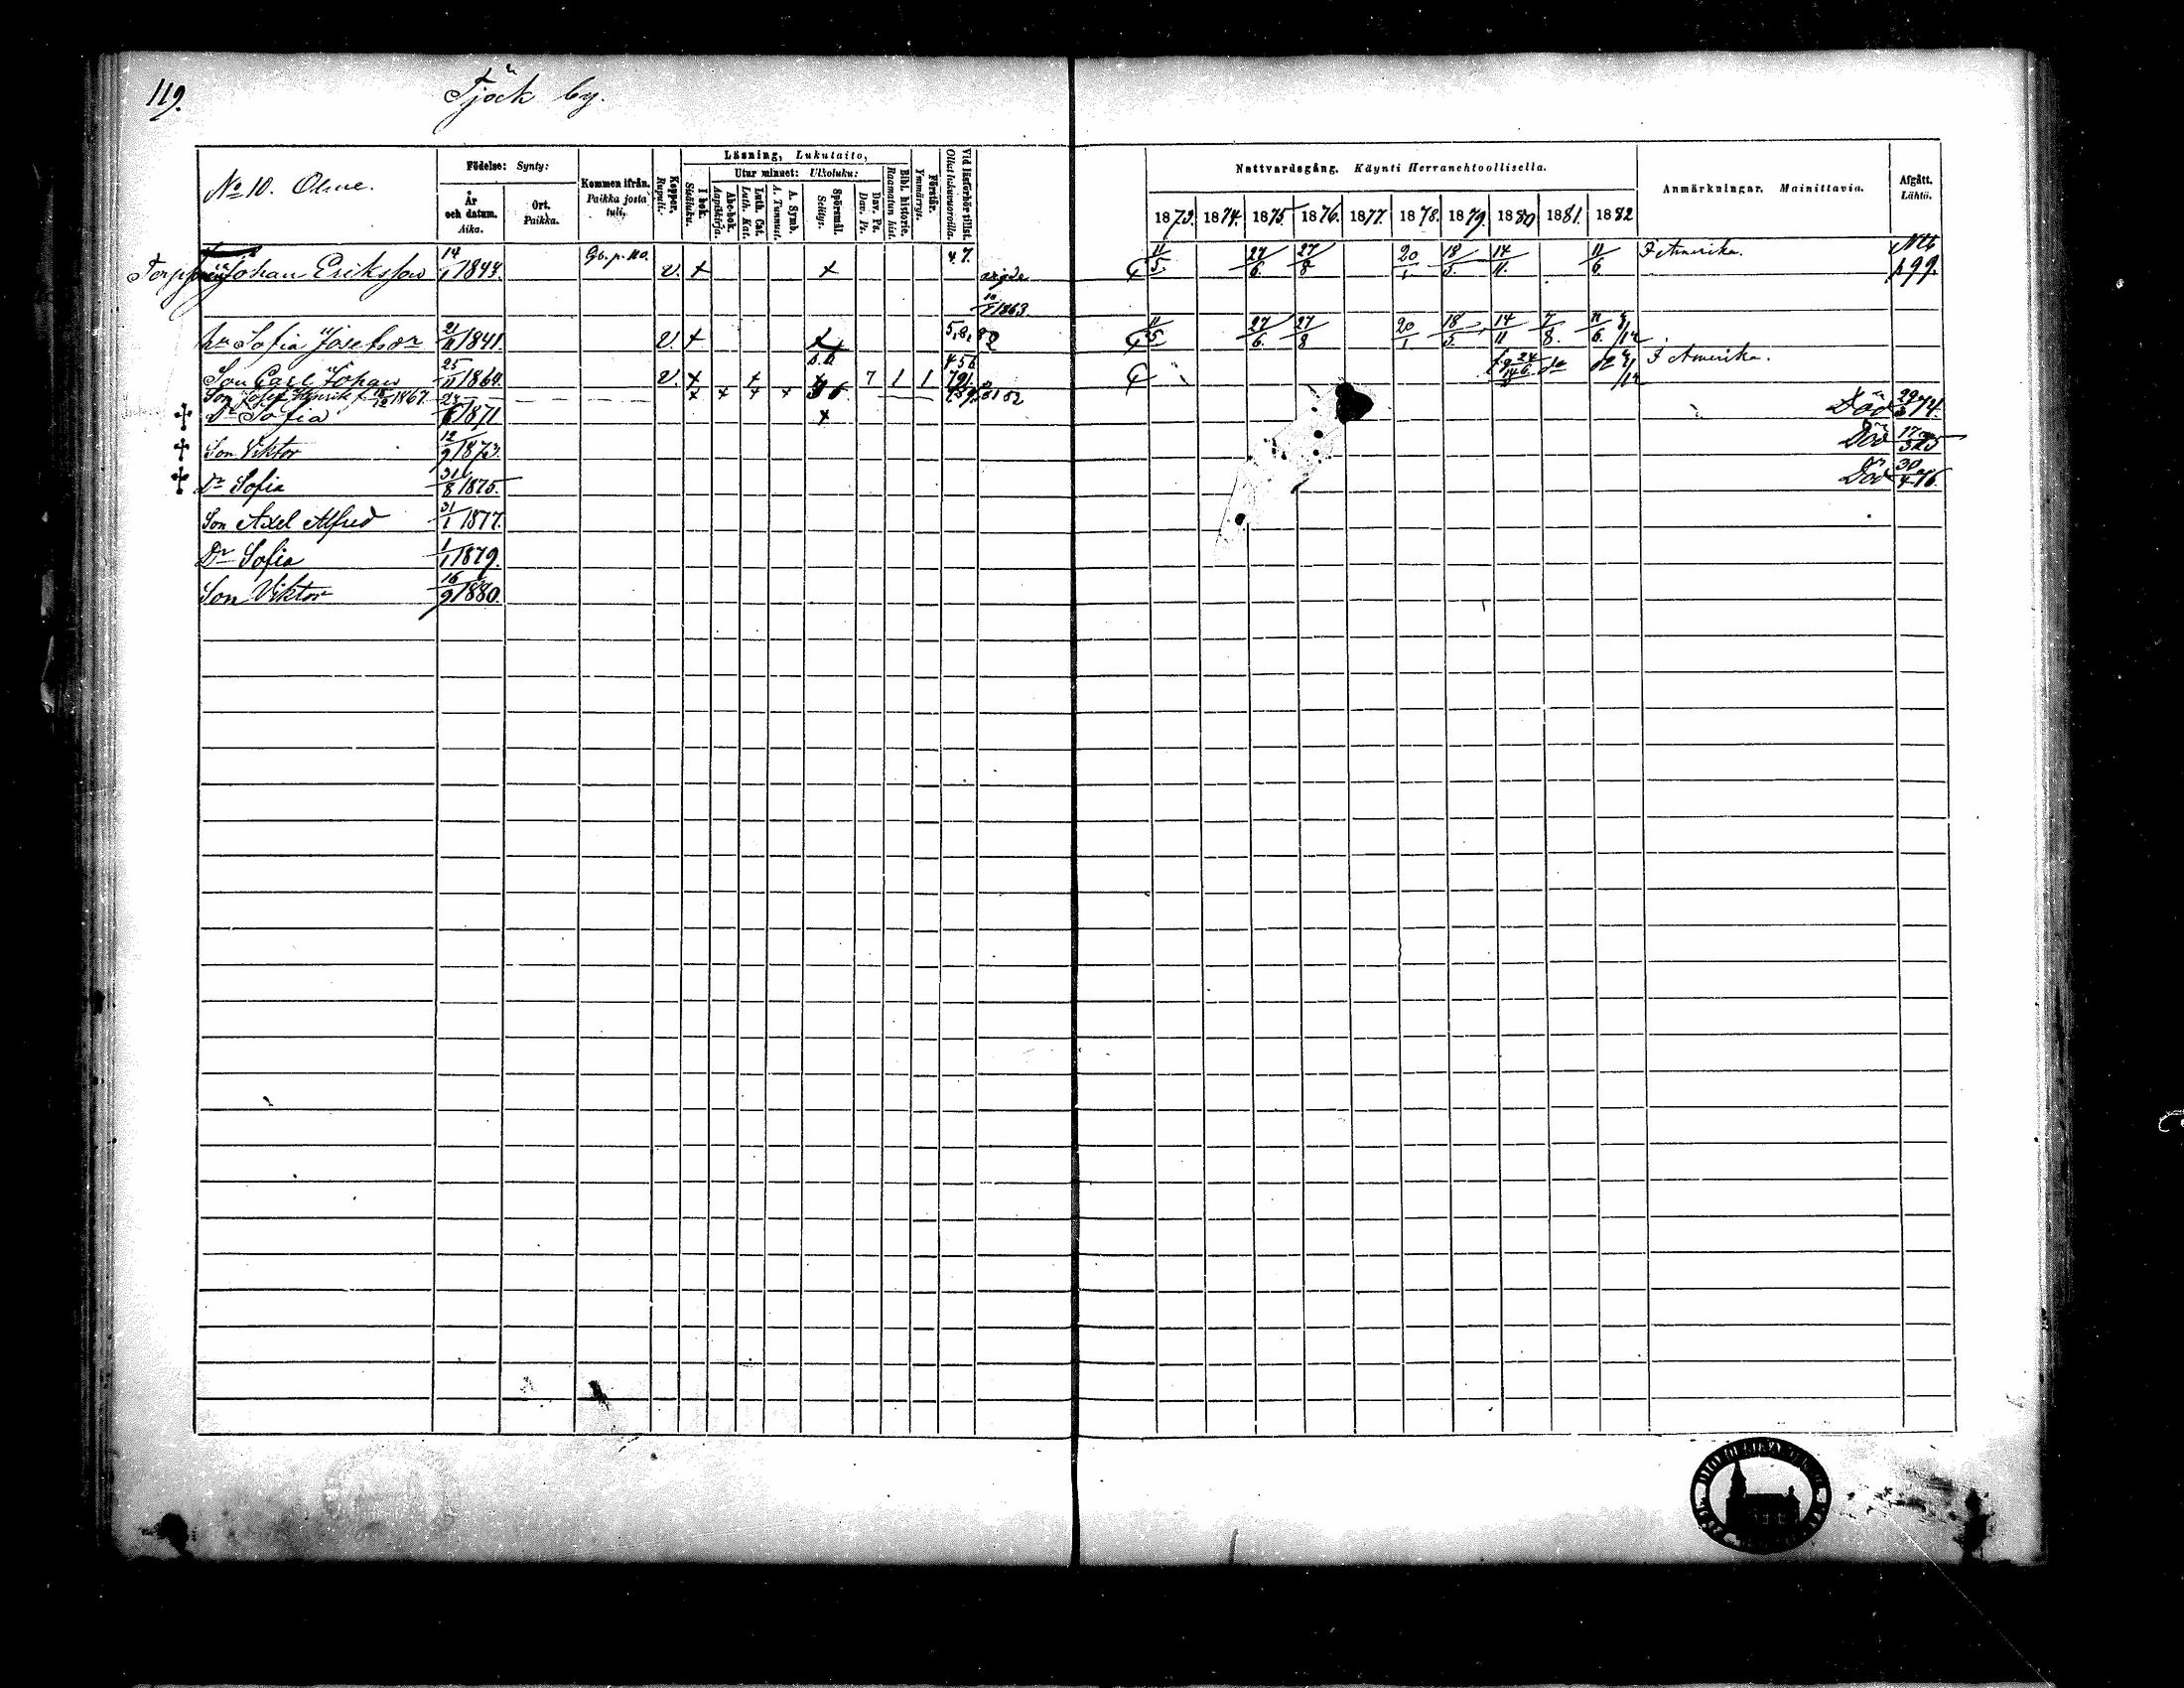 119.
Tjöck by.
No 10. Ohne.
Födelse: Synty:
År och datum. Aika.
Ort. Paikka.
Kommen ifrån. Paikka josta tuli.
Koppor. Rupuli.
Läsning, Lukutaito,
I bok. Sisäluku.
Utur minnet: Ulkoluku:
Abc-bok. Aapiskirja.
Luth. Cat. Luth. Kat.
A. Symb. A. Tunnust.
Spörsmål. Selitys.
Dav. Ps. Dav. Ps.
Bibl. historie. Raamatun hist.
Förstår. Ymmärrys.
Vid läsförhör tillst. Ollut lukuvuoroilla.
Nattvardsgång. Käynti Herranehtoollisella.
1873. 1874. 1875 1876. 1877. 1878. 1879. 1880 1881. 1882
Anmärkningar. Mainittavia.
Afgått. Lähtö.
Johan Eriksson 14/1 1844. Gb. p. 110. v. x x 4.7. vigde 11/5 27/6 27/8 20/1 18/5 14/11 11/6 I Amerika. p 99.
10/7 1863
hu Sofia Josefsdr 21/11 1841. v. x 5,8,82 11/5 27/6. 27/8 20/1 18/5. 14/11 7/8. 11/6.
Son Carl Johan 25/11 1864. v. x x 7 1 1 I Amerika.
Son Josef Henrik f. 1867.
Dr Sofia 24/6 1871 x Död 29/3 74.
Son Viktor 12/9 1873. Död 17/3 75
Dr Sofia 31/8 1875. Död 30/4 76.
Son Axel Alfred 31/1 1877.
Dr Sofia 1/1 1879.
Son Viktor 16/9 1880.